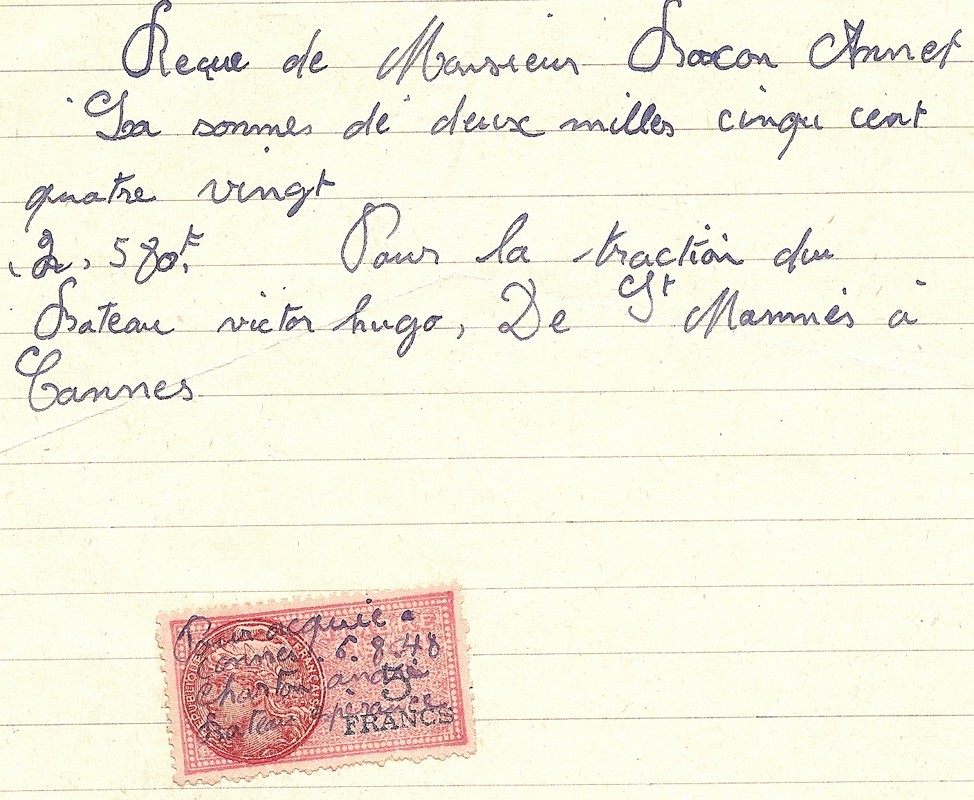 Reçue de Monsieur Boxcon Annet
La sommes de deux milles cinqu cent
quatre vingt
2, 580F. Pour la traction du
Bateau victor hugo, De St Mammès à
Cannes
Pour acquie a
Cannes 6.8.48
Charton andré
Bateau
5
FRANCS